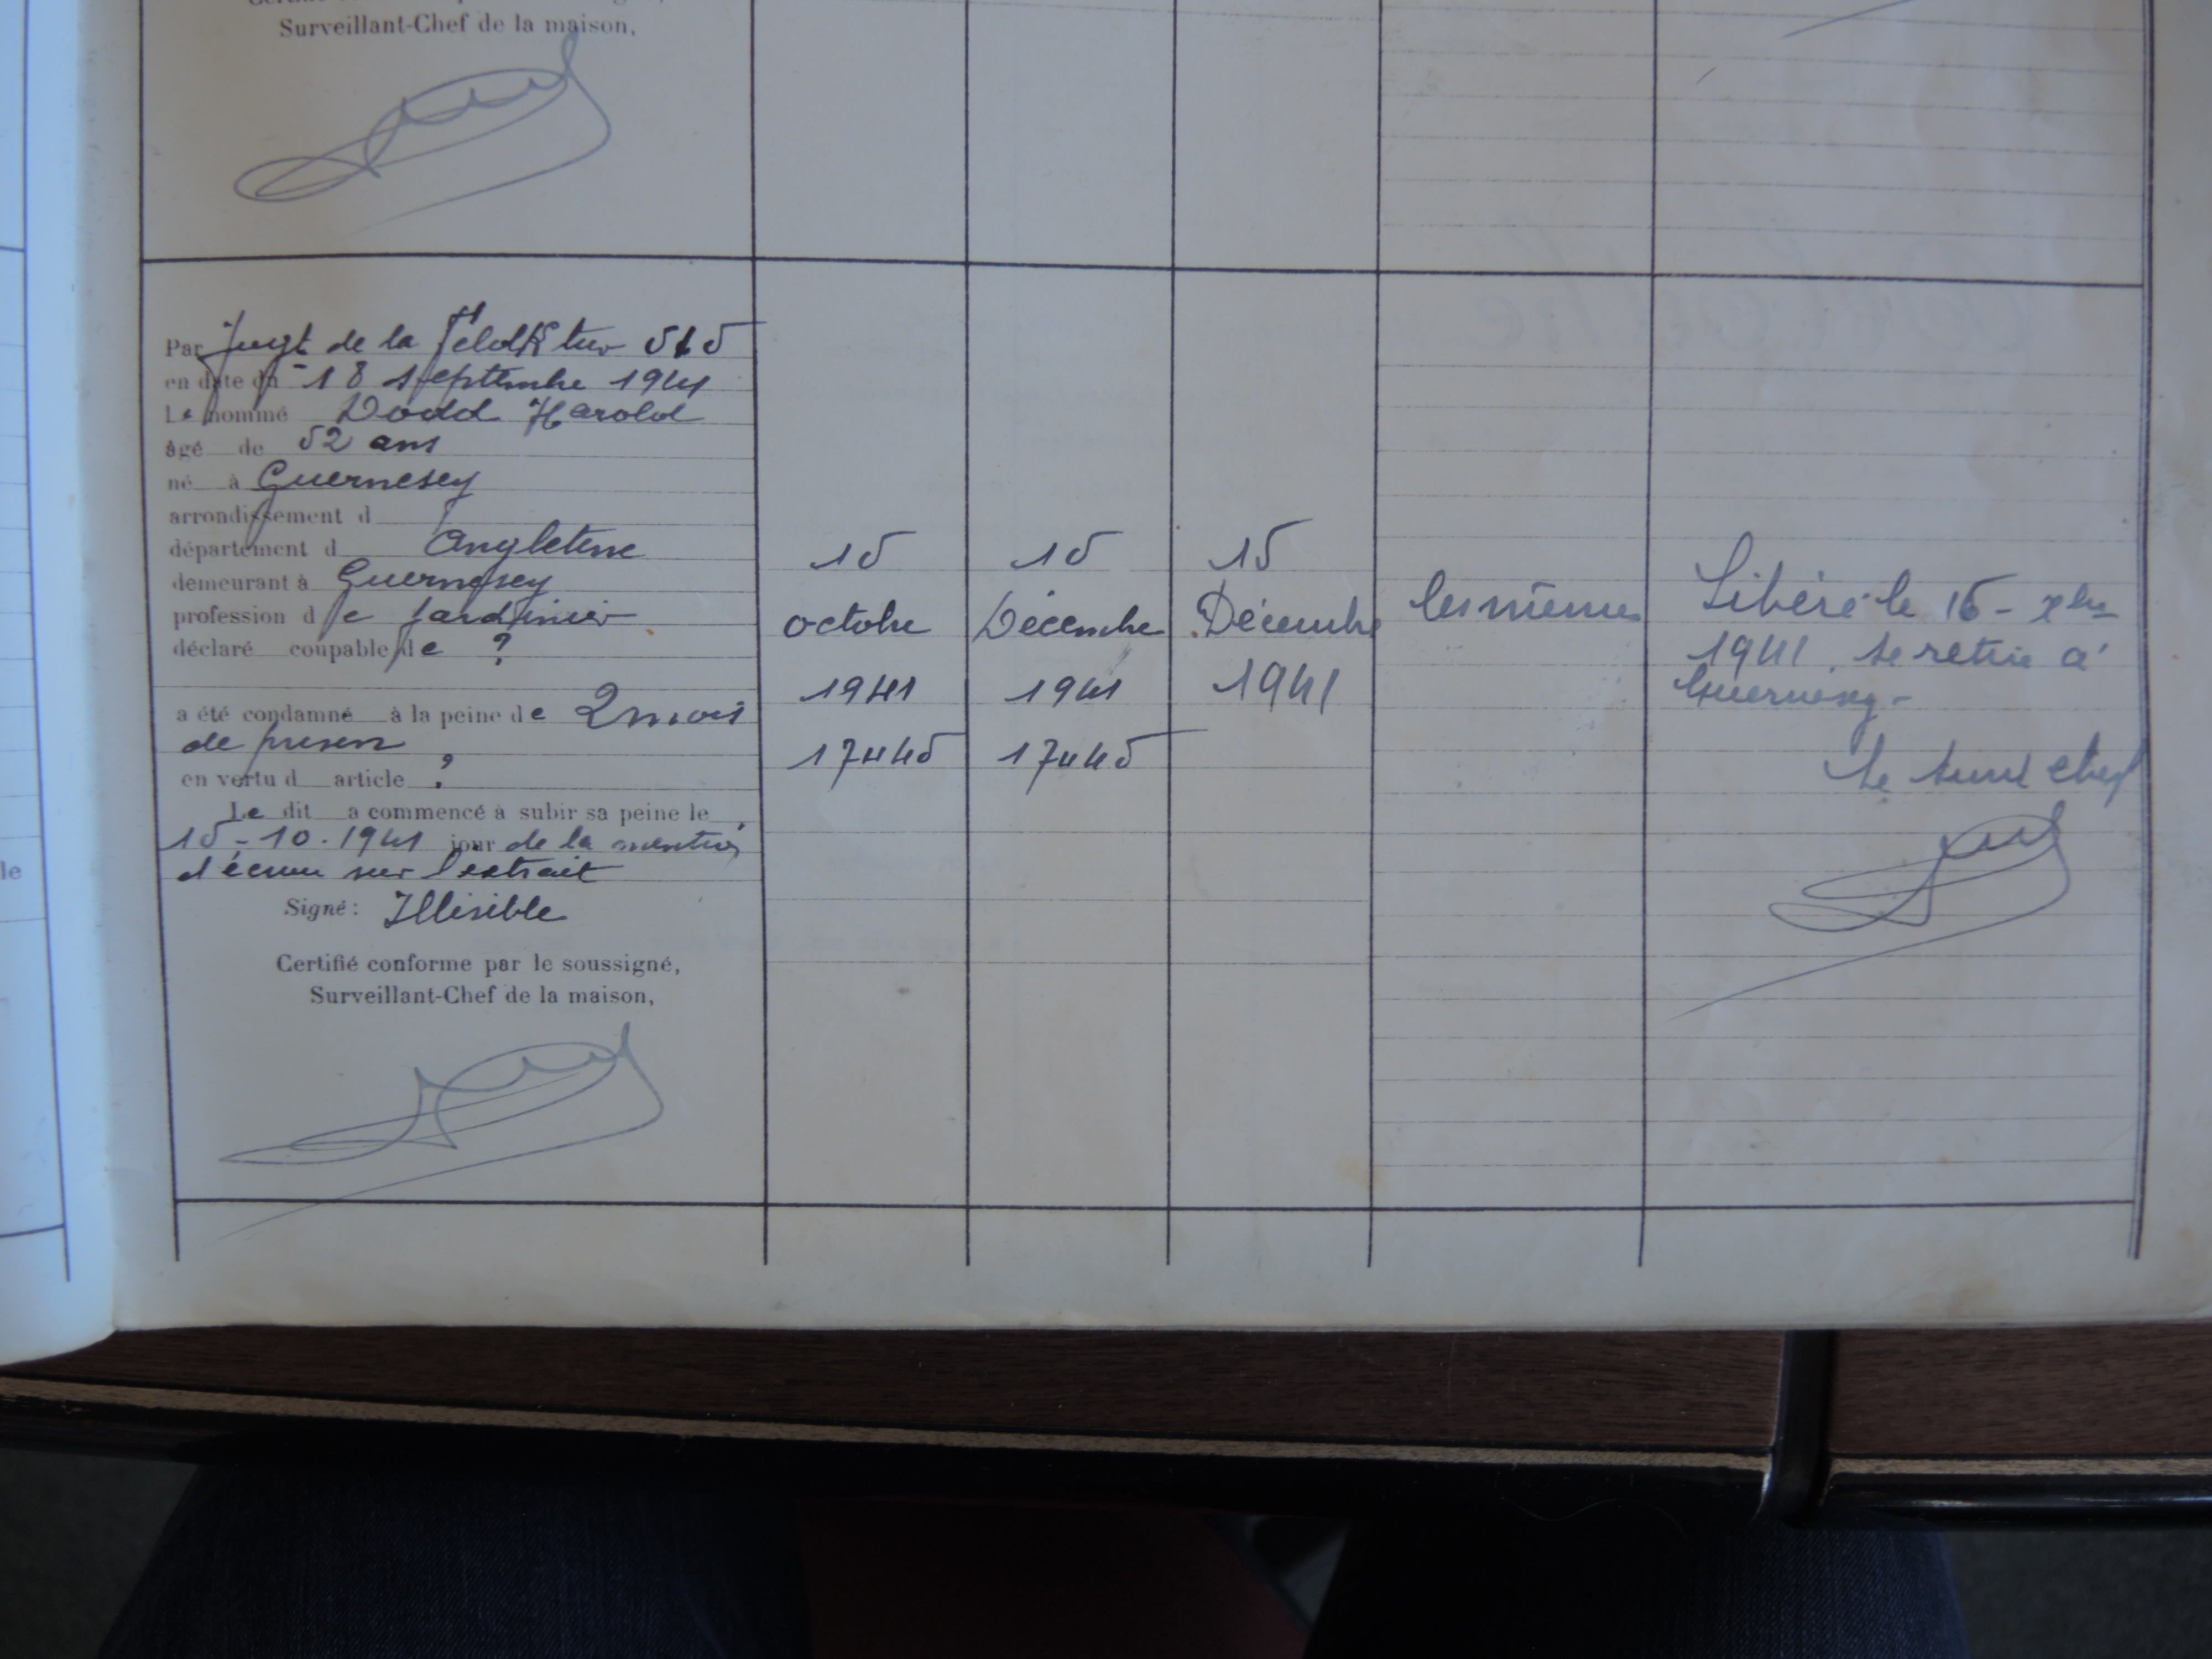 Surveillant-Chef de la maison,
Par Jugt de la Feldk tur 515
en date du 18 septembre 1941
Le nommé Dodd Harold
âgé de 52 ans
né à Guernesey
arrondissement d
département d Angleterre
demeurant à Guernesey
profession de Jardinier
déclaré coupable de ?
a été condamné à la peine de 2 mois
de prison
en vertu d article ?
Le dit a commencé à subir sa peine le
15-10.1941 jour de la mention
d'écrou sur l'extrait
Signé: Illisible
Certifié conforme par le soussigné,
Surveillant-Chef de la maison,
15
octobre
1941
17h45
15
Décembre
1941
17h45
15
Décembre
1941
les mêmes
Libéré le 15 - xbre
1941. se retire à
Guernesey -
Le Surv chef
le